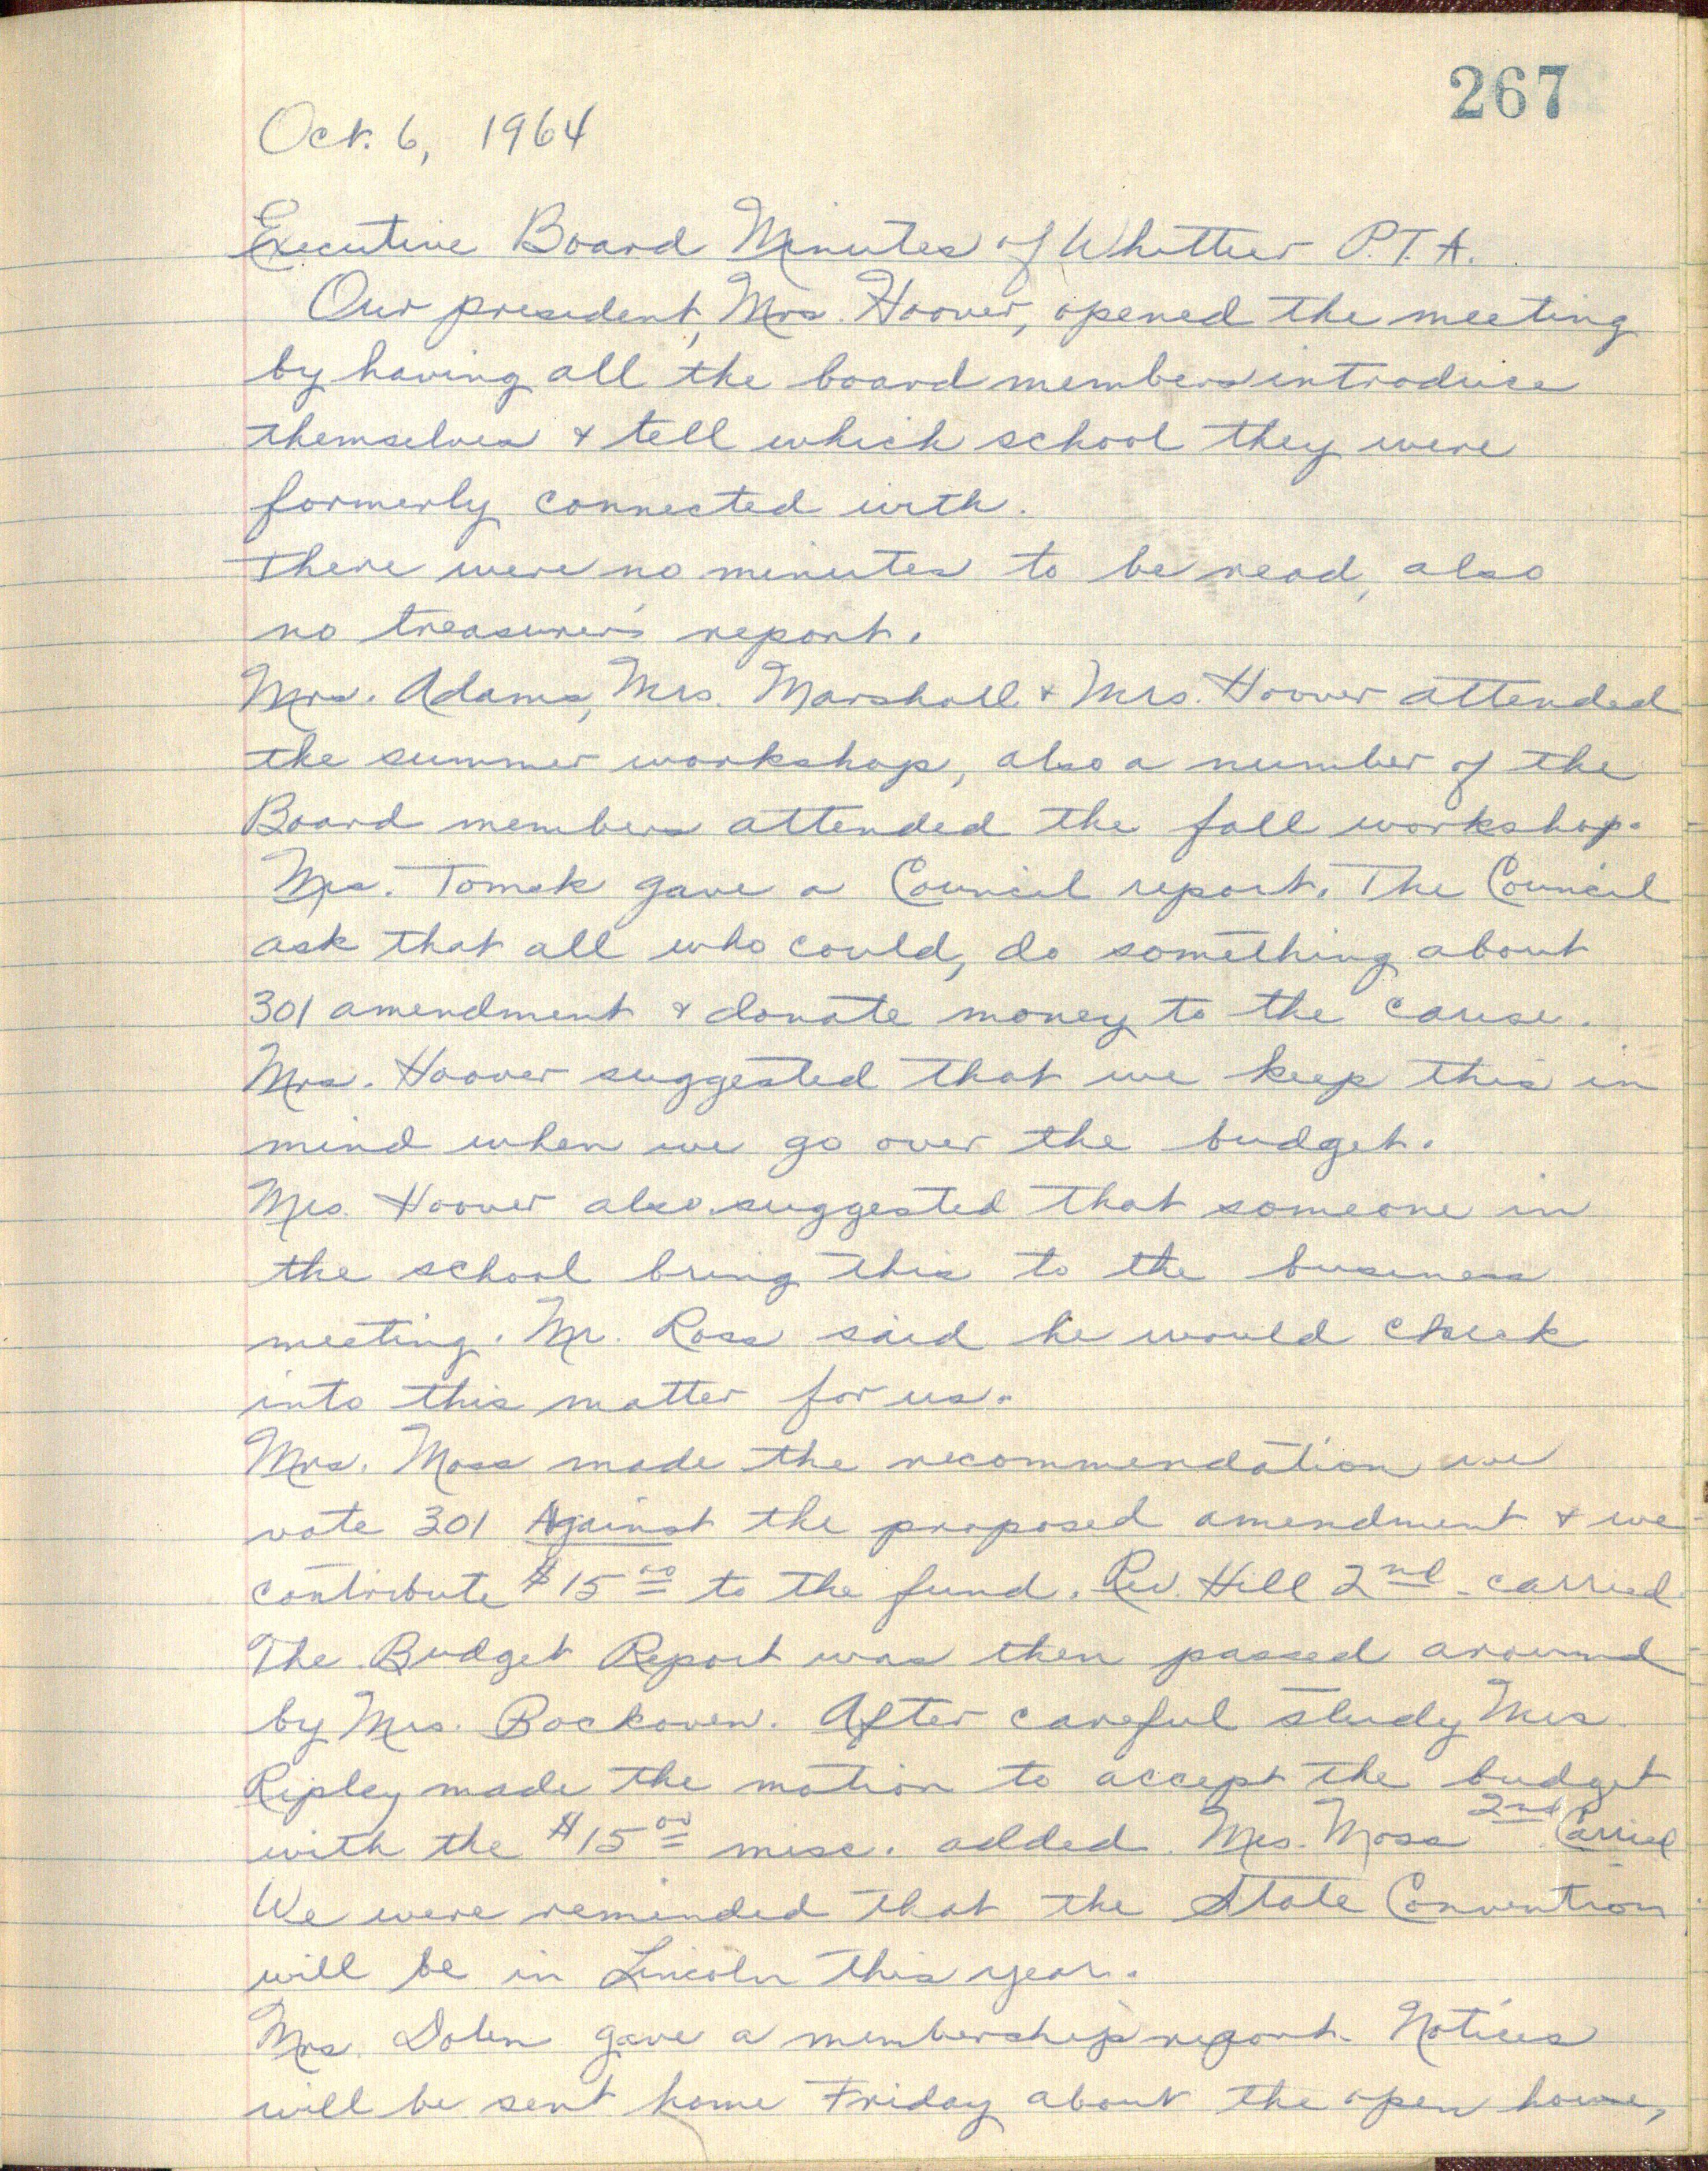 267
Oct. 6, 1964
Executive Board Minutes of Whittier P.T.A.
Our president, Mrs. Hoover, opened the meeting
by having all the board members introduce
themselves & tell which school they were
formerly connected with.
There were no minutes to be read, also
no treasurer's report.
Mrs. Adams, Mrs. Marshall & Mrs. Hoover attended
the summer workshop, also a number of the
Board members attended the fall workshop.
Mrs. Tomek gave a Council report. The Council
ask that all who could, do something about
301 amendment & donate money to the cause.
Mrs. Hoover suggested that we keep this in
mind when we go over the budget.
Mrs. Hoover also suggested that someone in
the school bring this to the business
meeting. Mr. Ross said he would check
into this matter for us.
Mrs. Moss made the recommendation we
vote 301 Against the proposed amendment & we
contribute $15.00 to the fund. Rev. Hill 2nd - carried
The Budget Report was then passed around
by Mrs. Bockoven. After careful study Mrs.
Ripley made the motion to accept the budget
with the $15.00 misc. added. Mrs. Moss 2nd. Carried
We were reminded that the State Convention
will be in Lincoln this year.
Mrs. Dolen gave a membership report. Notices
will be sent home Friday about the open house,